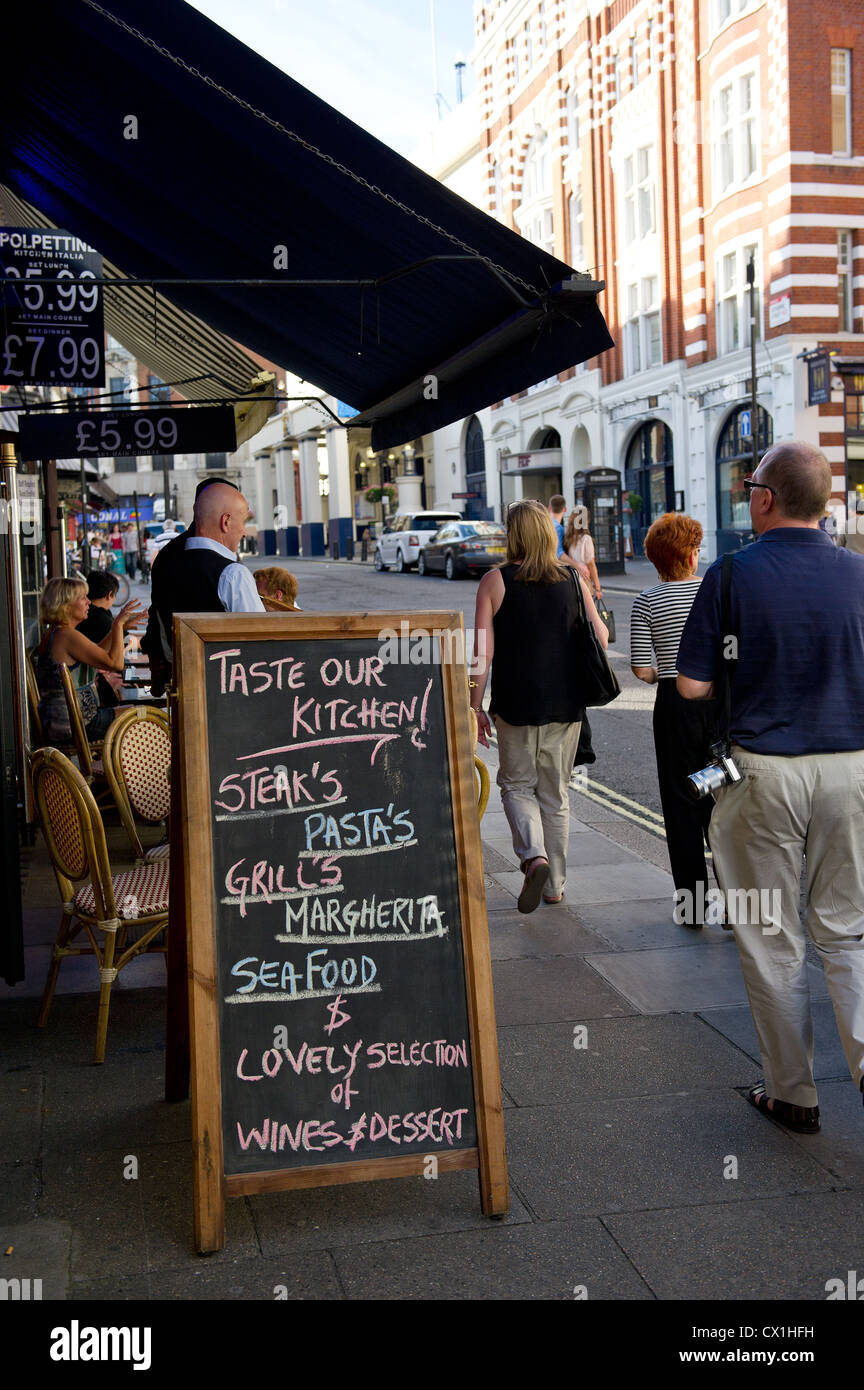 POLPETTINE
KITCHEN ITALIA
SET LUNCH
£5.99
SET MAIN COURSE
SET DINNER
£7.99
£5.99
TASTE OUR
KITCHEN!
STEAK'S
PASTA'S
GRILL'S
MARGHERITA
SEAFOOD
$
LOVELY SELECTION
of
WINES $ DESSERT
alamy
Image ID: CX1HFH
www.alamy.com